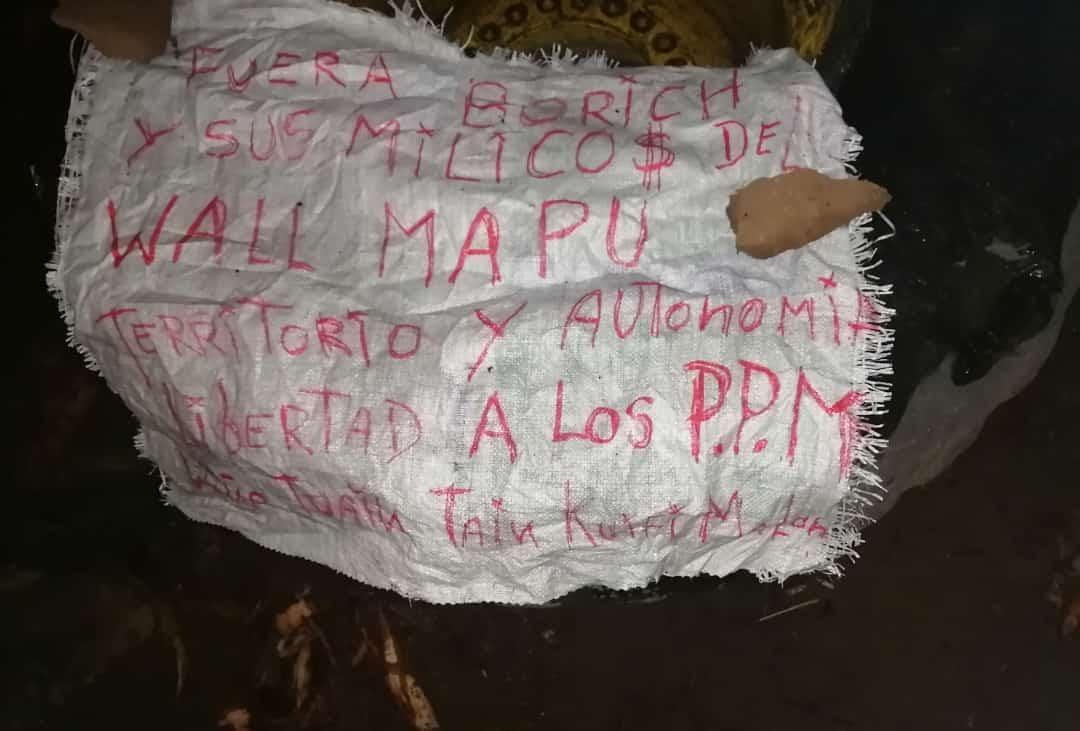 FUERA BORICH
Y SUS MILICO$ DEL
WALL MAPU
TERRITORIO Y AUTONOMIA
LIBERTAD A LOS P.P.M
Tuaiñ Taiñ Kuifi